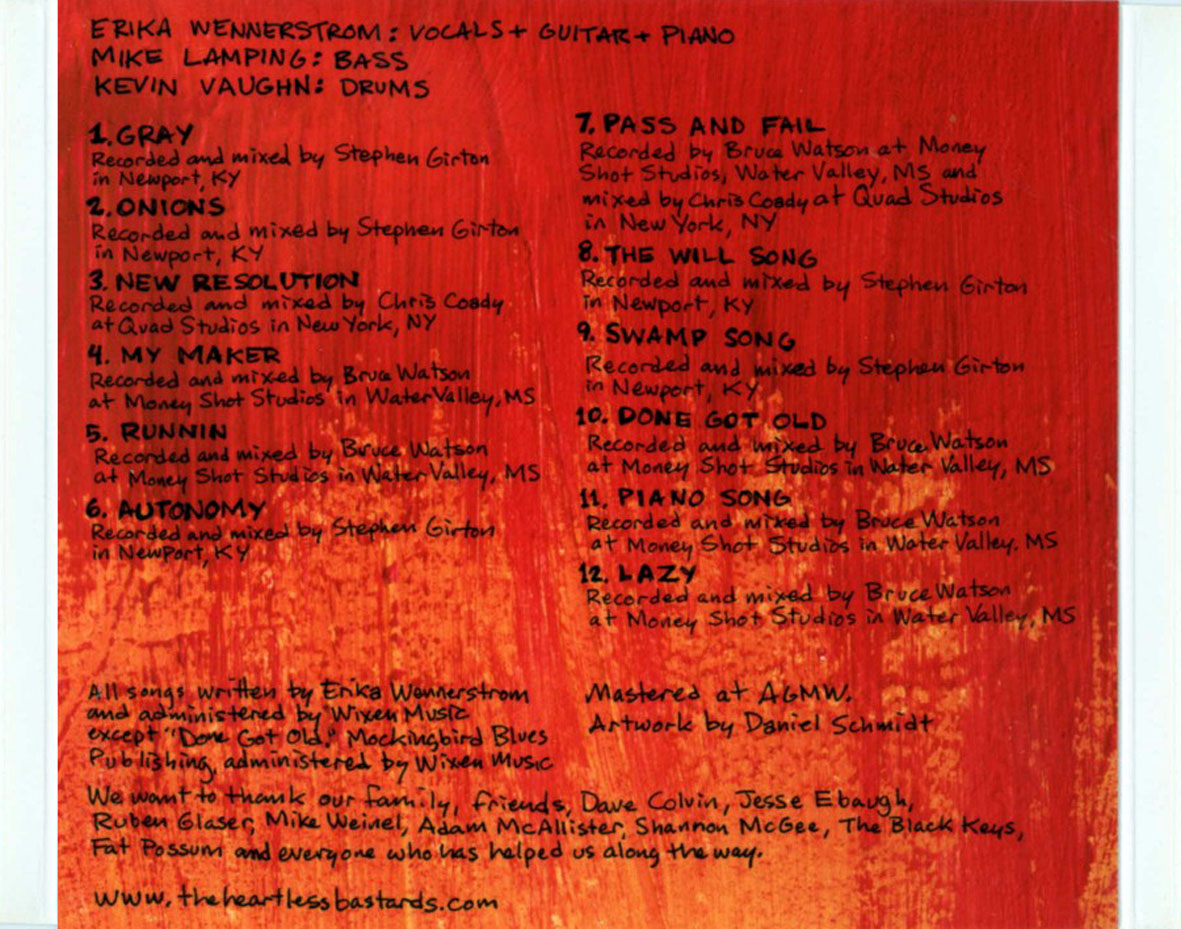 ERIKA WENNERSTROM: VOCALS + GUITAR + PIANO
MIKE LAMPING: BASS
KEVIN VAUGHN: DRUMS
1. GRAY
Recorded and mixed by Stephen Girton
in Newport, KY
2. ONIONS
Recorded and mixed by Stephen Girton
in Newport, KY
3. NEW RESOLUTION
Recorded and mixed by Chris Coady
at Quad Studios in New York, NY
4. MY MAKER
Recorded and mixed by Bruce Watson
at Money Shot Studios in Water Valley, MS
5. RUNNIN
Recorded and mixed by Bruce Watson
at Money Shot Studios in Water Valley, MS
6. AUTONOMY
Recorded and mixed by Stephen Girton
in NewPort, KY
7. PASS AND FAIL
Recorded by Bruce Watson at Money
Shot Studios, Water Valley, MS and
mixed by Chris Coady at Quad Studios
in New York, NY
8. THE WILL SONG
Recorded and mixed by Stephen Girton
in Newport, KY
9. SWAMP SONG
Recorded and mixed by Stephen Girton
in Newport, KY
10. DONE GOT OLD
Recorded and mixed by Bruce Watson
at Money Shot Studios in Water Valley, MS
11. PIANO SONG
Recorded and mixed by Bruce Watson
at Money Shot Studios in Water Valley. MS
12. LAZY
Recorded and mixed by Bruce Watson
at Money Shot Studios in Water Valley, MS
All songs written by Erika Wennerstrom
and administered by Wixen Music
except "Done Got Old," Mockingbird Blues
Publishing, administered by Wixen Music
Mastered at AGMW.
Artwork by Daniel Schmidt
We want to thank our family, friends, Dave Colvin, Jesse Ebaugh,
Ruben Glaser, Mike Weinel, Adam McAllister, Shannon McGee, The Black Keys,
Fat Possum and everyone who has helped us along the way.
www.theheartlessbastards.com